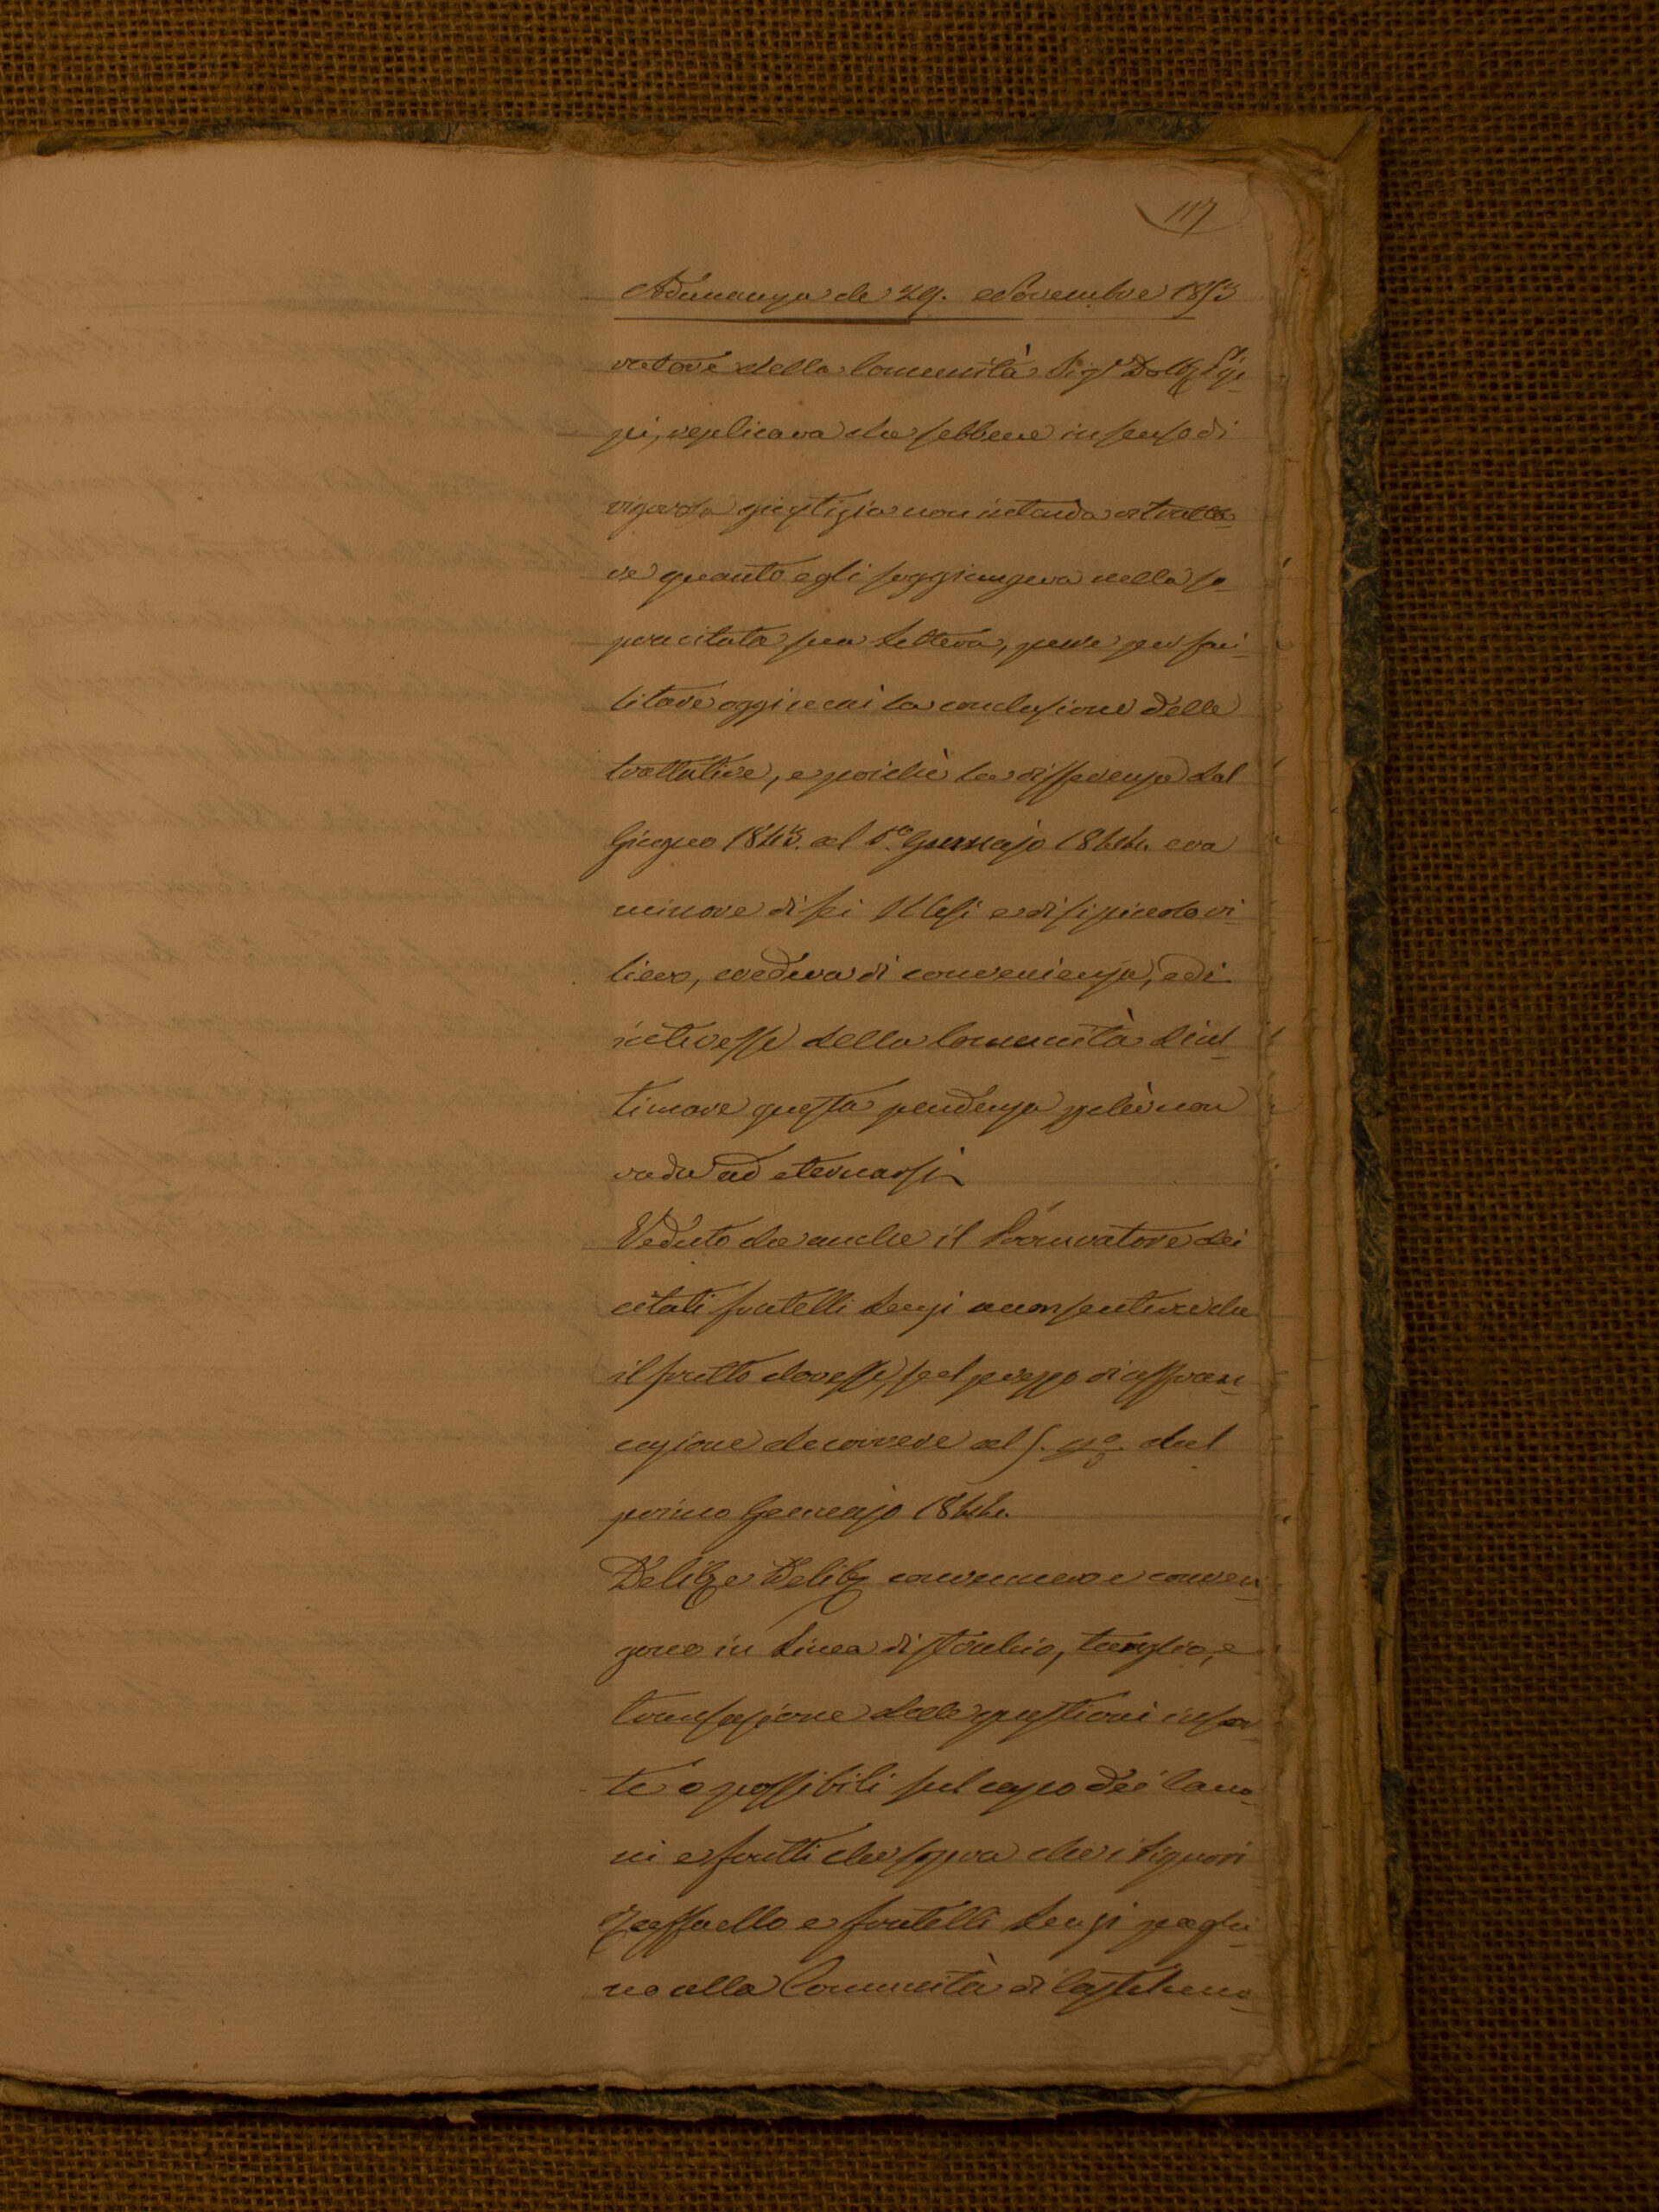 117
Adunanza de 29. Novembre 1853
ratore della Comunità Sig.r Dott. Pip
pi, replicava che sebbene in senso di
rigorosa giustizia non intenda attratta
re quanto egli soggiungeva nella so
pracitata sua Lettera, pure per faci
litare oggi mai la conclusione delle
trattative, e poichè la differenza dal
Giugno 1843. al P.o Gennajo 1844. era
minore di sei Mesi e di sì piccolo ri
lievo, credeva di convenienza, e di
interesse della Comunità di ul
timare questa pendenza
vada ad eternarsi
Veduto che anche il Procuratore dei
citati fratelli Lenzi acconsentiva che
il frutto dovesse, sul prezzo di affran
cazione decorrere al 5. p.o dal
primo Gennajo 1844.
Delib.e Delib. convennero e conven
gono in Linea di stralcio, taglio, e
transazione delle questioni insor
te o possibili sul capo dei Cano
ni e frutti che sopra che i Signori
Raffaello e fratelli Lenzi paghi
no alla Comunità di Castelnuo